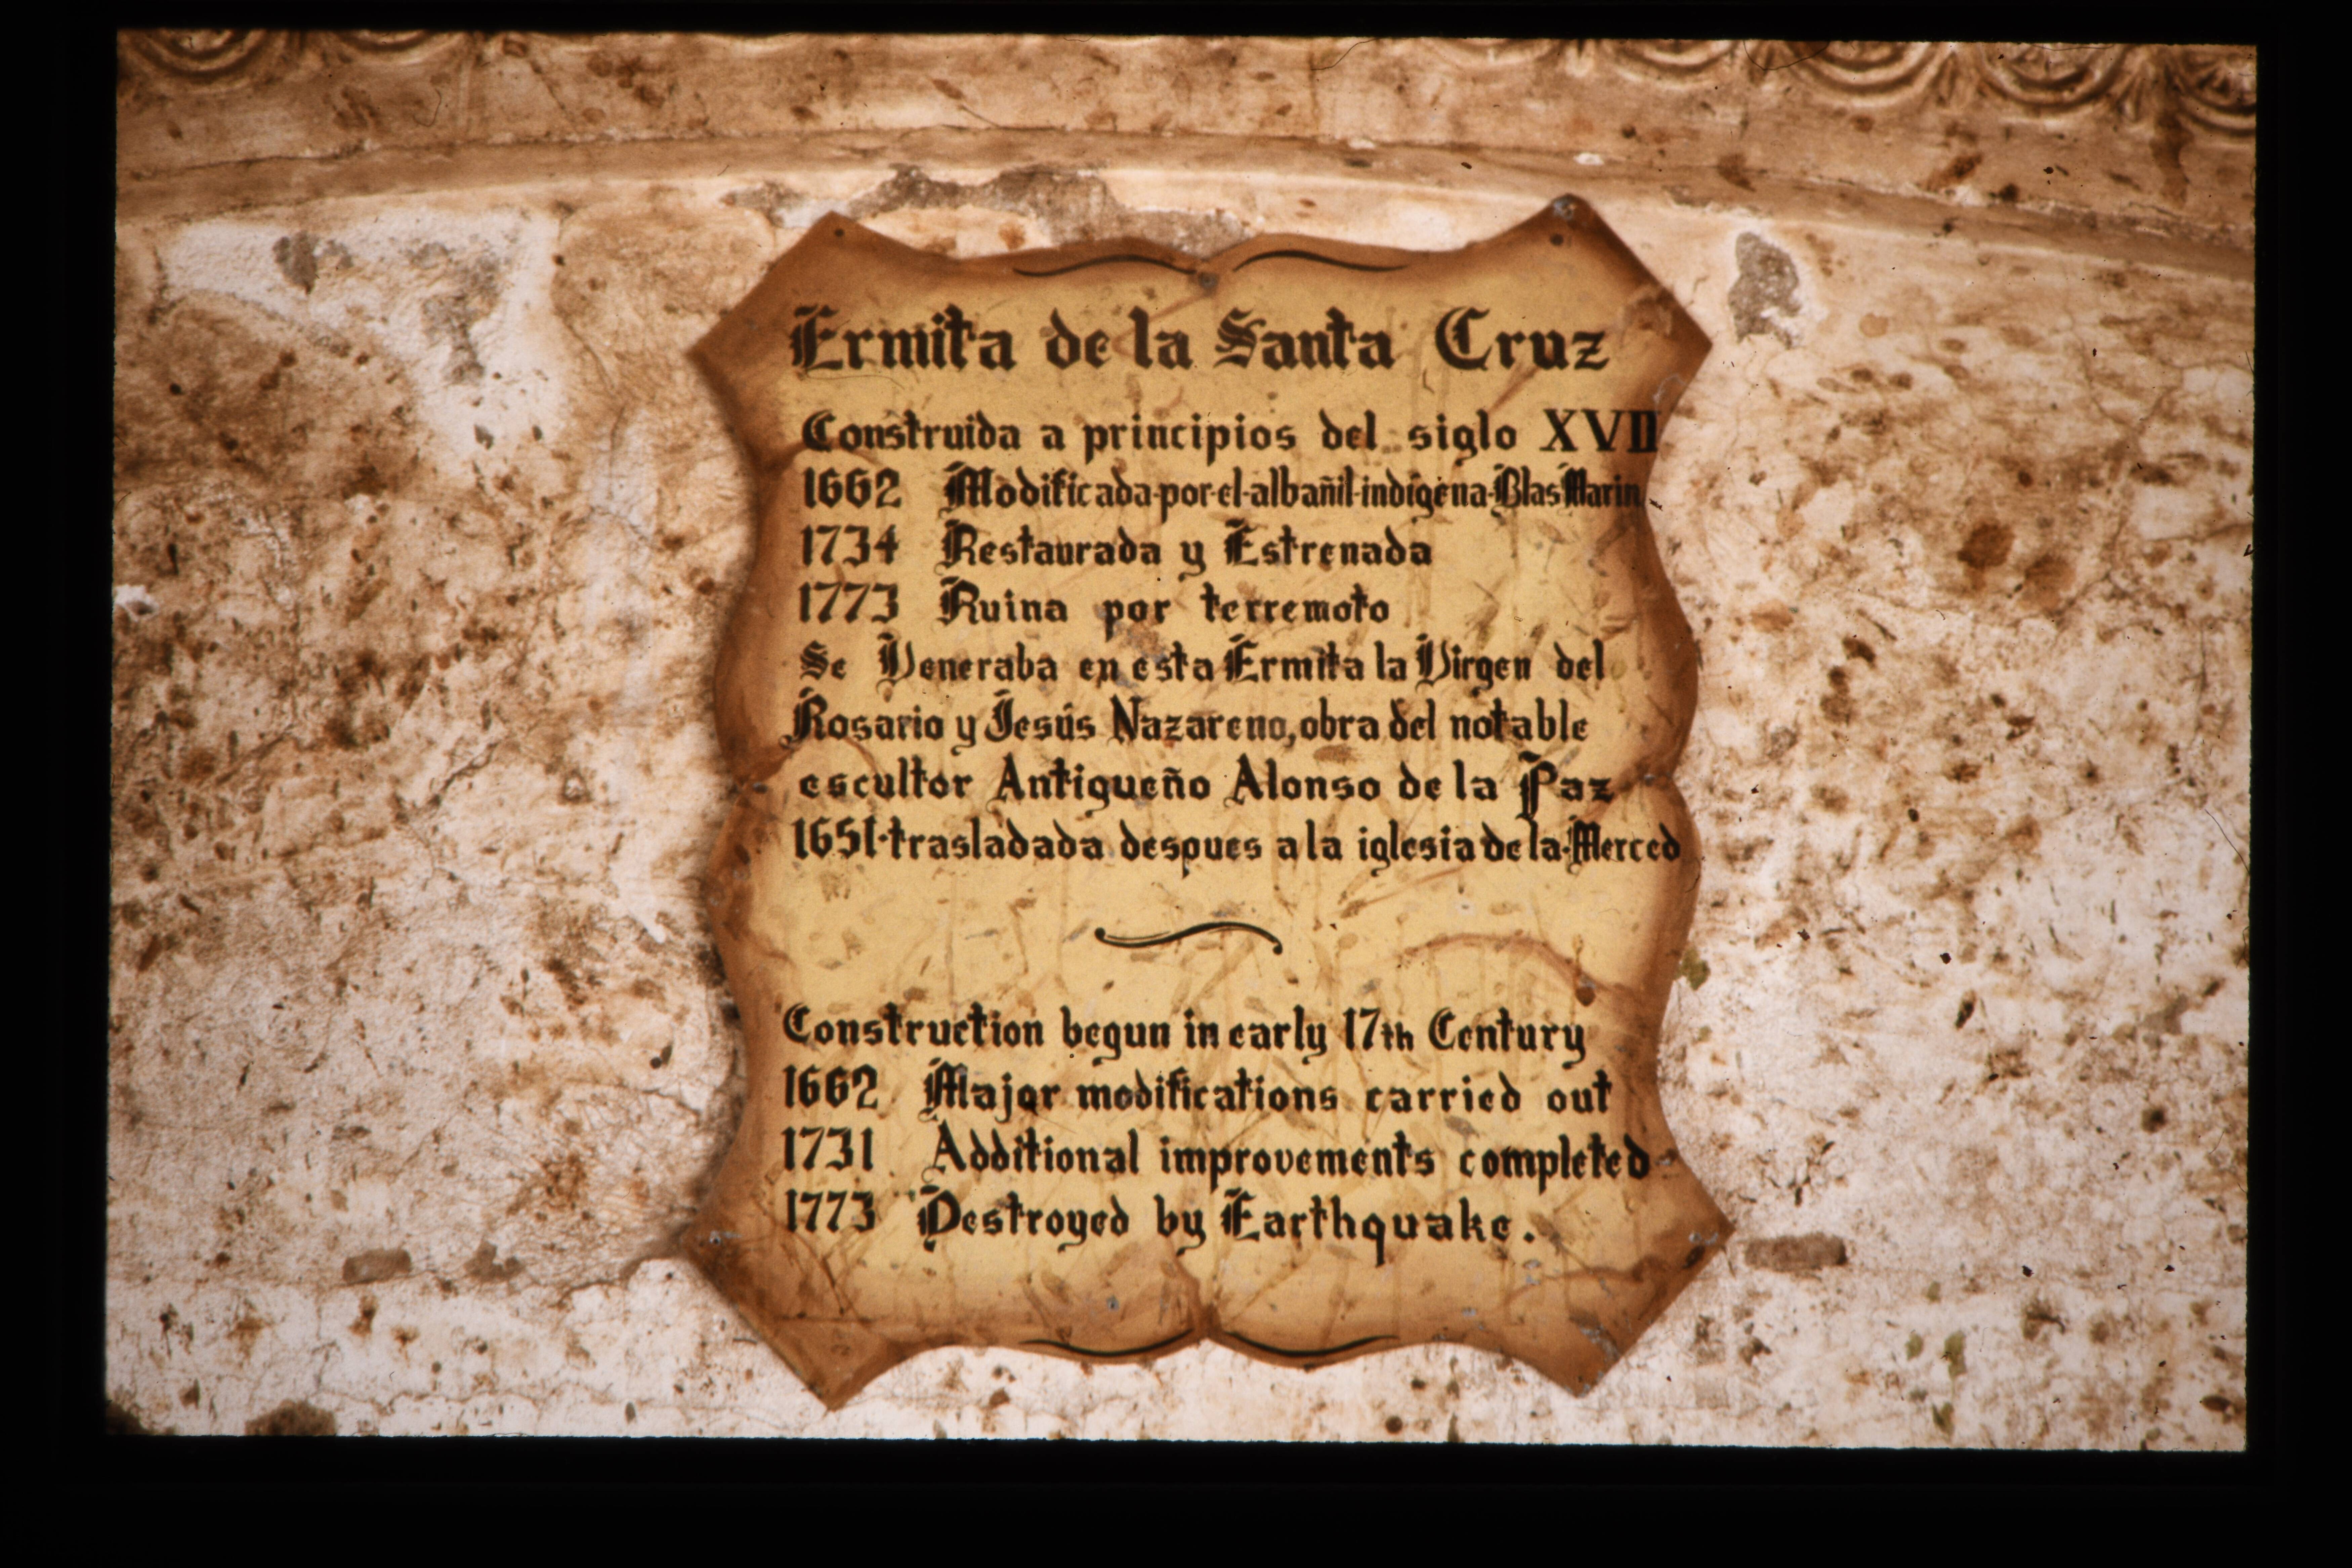 Ermita de la Santa Cruz
Construida a principios del siglo XVII
1662 Modificada·por·el·albañil·indígena·Blas Marin.
1734 Restaurada y Estrenada
1773 Ruina por terremoto
Se Veneraba en esta Ermita la Virgen del
Rosario y Jesús Nazareno, obra del notable
escultor Antigueño Alonso de la Paz
1651·trasladada despues a la iglesia de la·Merced
Construction begun in early 17th Century
1662 Major modifications carried out
1731 Additional improvements completed
1773 Destroyed by Earthquake.